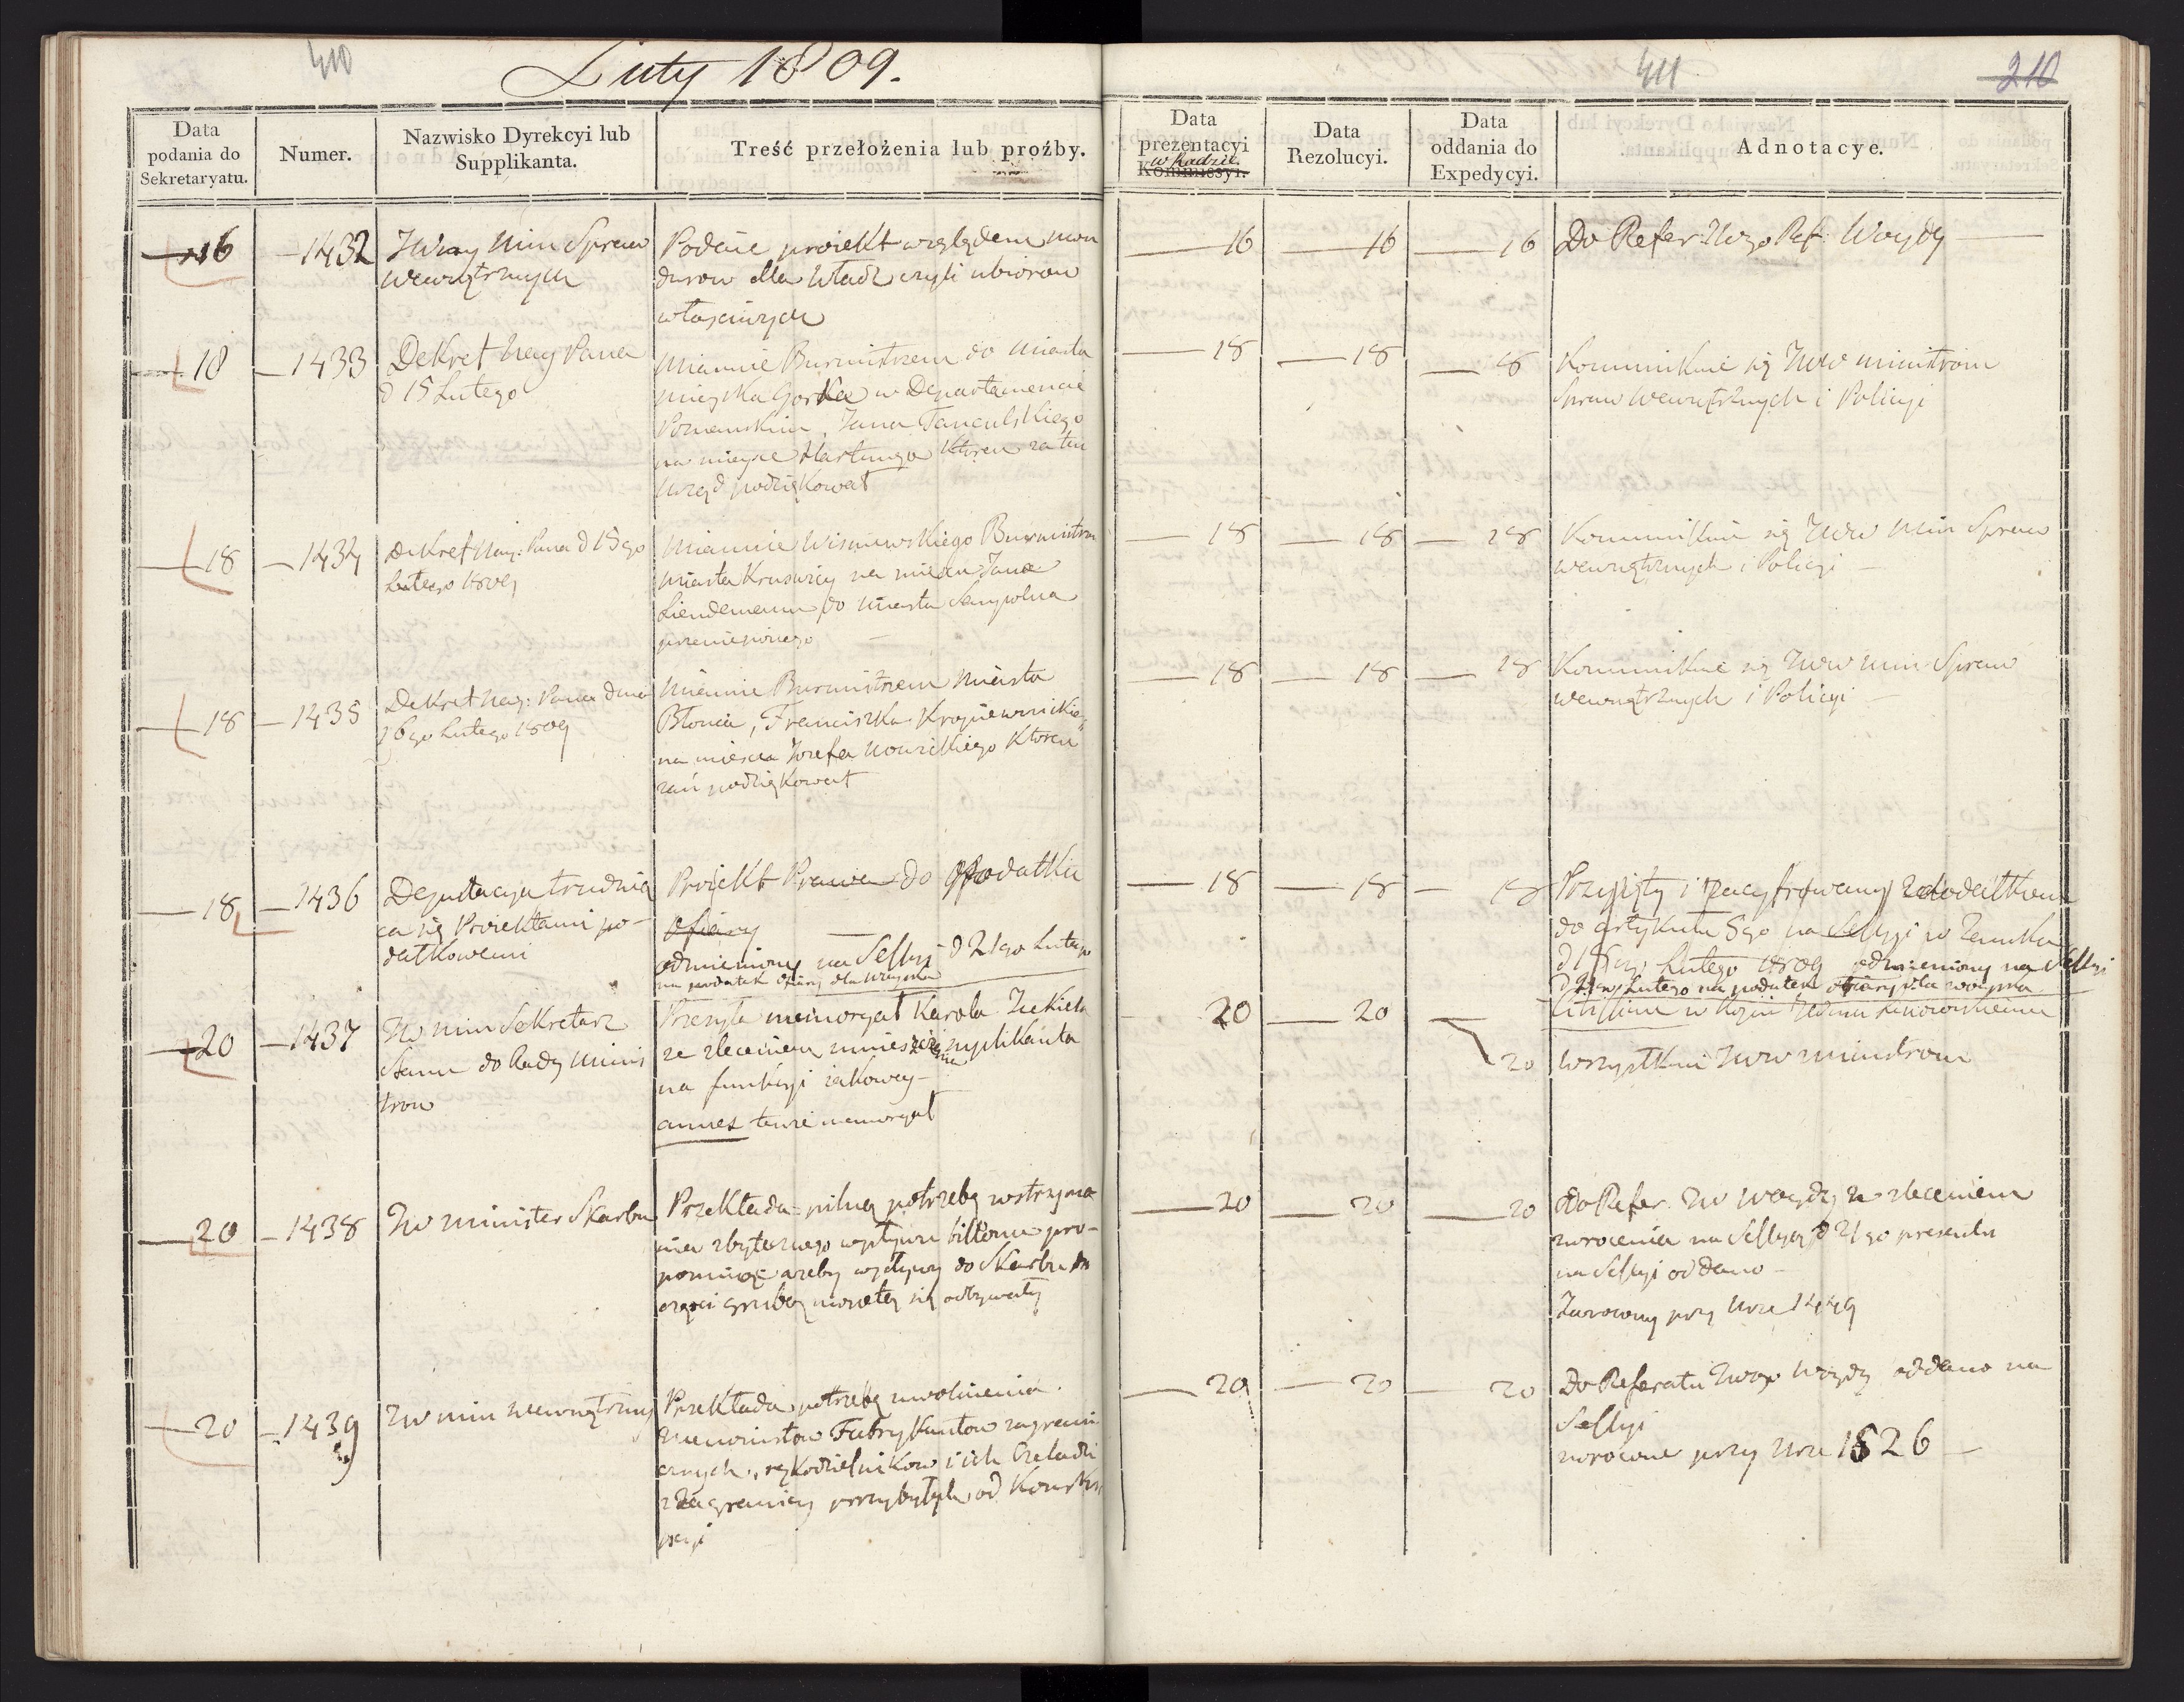 410
Luty 1809.
411
210
Data podania do Sekretaryatu.
Numer.
Nazwisko Dyrekcyi lub Supplikanta.
Treść przełożenia lub proźby.
Data prezentacyi
w Radzie
Kommissyi.
Data Rezolucyi.
Data oddania do Expedycyi.
Adnotacye.
16
1432
JWny Min Spraw
wewnętrznych
Podaie proiekt względem mun
durow dla Władz czyli ubiorow
właściwych
16
16
16
Do Refer: JWgo Ref: Woydy
18
1433
Dekret Nay Pana
d 15 Lutego
Mianuie Burmistrzem do Miasta
Mieyska Gorka w Departamencie
Poznanskim, Jana
na mieysce Hartunga ktoren za ten
Urząd podziękował
18
18
18
Kommunikuie się JWW Ministrom
Spraw Wewnętrznych i Policyi
18
1434
Dekret Nay: Pana d 15go
Lutego 1809
Mianuie Wisniewskiego Burmistrzem
Miasta Kruswicy na mieyscu Jana
Liendemann do Miasta Sempolna
przeniesionego
18
18
18
Kommunikuie się JWW Min Spraw
wewnętrznych i Policyi
18
1435
Dekret Nay: Pana dnia
16go Lutego 1809
Mianuie Burmistrzem Miasta
Błonia, Franciszka
na mieysca Jozefa Nowickiego ktoren
zań podziękował
18
18
18
Kommunikuie się JWW Min Spraw
wewnętrznych i Policyi
18
1436
Deputacya trudnią
ca się Proiektami po-
datkowemi
Proiekt Prawa do Podatku
Ofiary
odmieniony na Sessyi d 21go Lutego
na podatek ofiary dla woyska
18
18
18
Przyięty i zacyfrowany z dodatkiem
do artykułu 5go na Sessyi w Zamku
Lutego 1809 odmieniony na Sessyi
d 21go Lutego na podatek ofiary dla woyska
20
1437
JW Min Sekretarz
Stanu do Rady Minis
trow
Przesyła memoryał Karola
ze zleceniem umieszczenia supplikanta
na funkcyi iakowey
annex tenże memoryał
20
20
20
wszystkim JWW Ministrom
20
1438
JW Minister Skarbu
Przekłada pilną potrzebę wstrzyma
nia zbytecznego wpływu billonu pro-
ponuiąc ażeby wpływy do Skarbu w
części grubą monetą się odbywały
20
20
20
do Refer. JW Woydy ze zleceniem
zwrocenia na Sessyą d 21go presentis
na Sessyi oddano
Zwrocony przy Nrze 1449
20
1439
JW Min wewnętrzny
Przekłada potrzebę uwolnienia
Fabrykantow zagrani
cznych, rękodzielnikow i ich Czeladzi
z zagranicy przybyłych od Konskry
pcyi
20
20
20
Do Referatu JWgo Woydy oddano na
Sessyi
zwrocone przy Nrze 1526